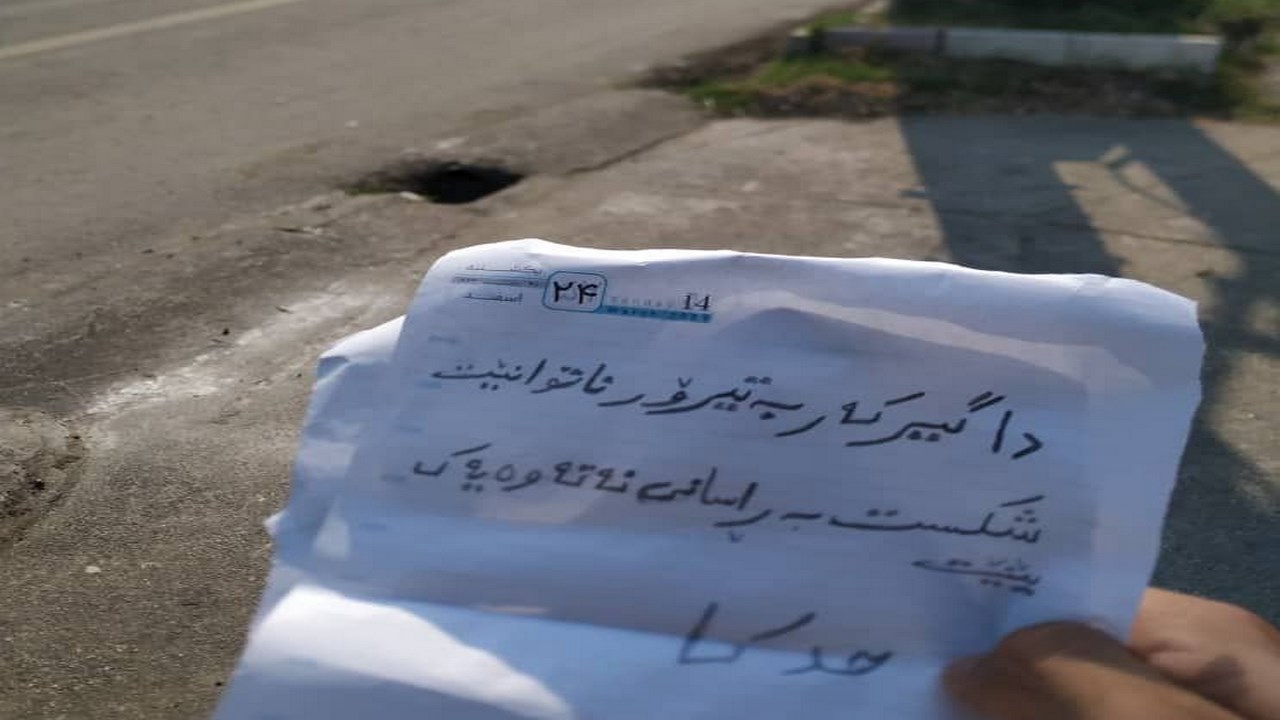 یکشنبه
اسفند
۲۴
Sunday 14
March
داگیرکەر بە تیرۆر ناتوانێت
شکست بە ڕاسانی نەتەوەیەک
بێنێت
حدکا